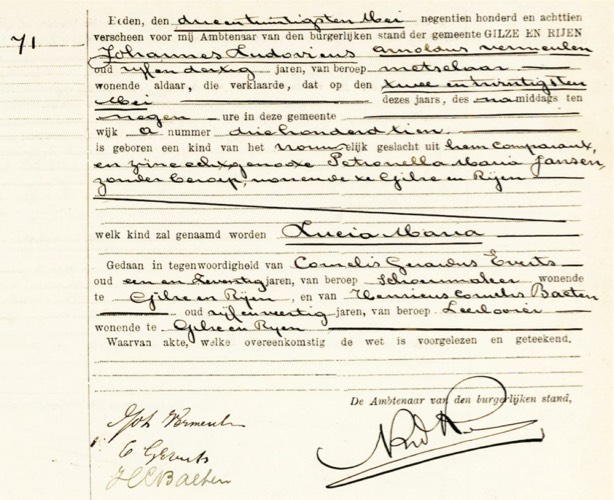 71
Heden, den drieentwintigsten Mei negentien honderd en achttien
verscheen voor mij Ambtenaar van den burgerlijken stand der gemeente GILZE EN RIJEN
Johannes Ludovicus Arnoldus Vermeulen
oud vijfendertig jaren, van beroep metselaar
wonende aldaar, die verklaarde, dat op den twee en twintigsten
Mei dezes jaars, des namiddags ten
negen ure in deze gemeente
wijk A nummer driehonderd tien
is geboren een kind van het vrouwelijk geslacht uit hem comparant,
en zijne echtgenoote Petronella Maria Jansen,
zonder beroep, wonende te Gilze en Rijen
welk kind zal genaamd worden Lucia Maria
Gedaan in tegenwoordigheid van Cornelis Gerardus Everts
oud een en zeventig jaren, van beroep schoenmaker wonende
te Gilze en Rijen, en van Henricus Cornelis Baeten
oud vijfenveertig jaren, van beroep Leerlooier
wonende te Gilze en Rijen
Waarvan akte, welke overeenkomstig de wet is voorgelezen en geteekend.
De Ambtenaar van den burgerlijken stand,
Joh Vermeulen
C G Everts
H C Baeten